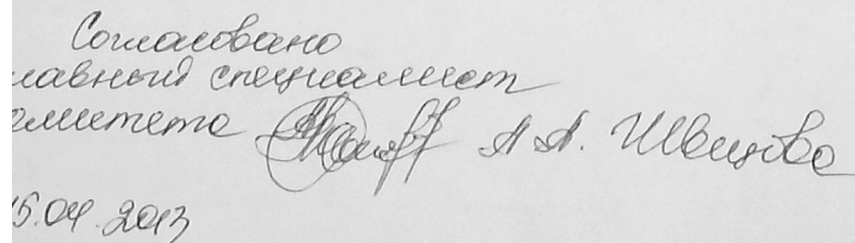 Согласовано
лавный специалист
омитета А.А. Швецова
15.04.2013